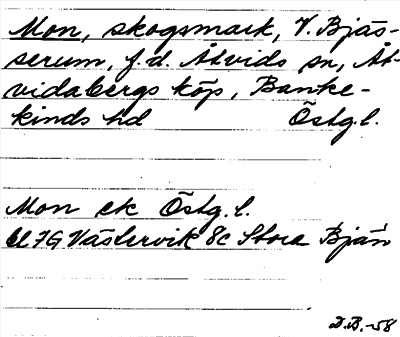 Mon, skogsmark, V. Bjäs-
serum, f.d. Åtvids sn, Åt-
vidabergs köp, Banke-
kinds hd Östg.l.
Mon ek Östg.l.
Bl 7G Västervik 8c Stora Bjän
D.B.-58